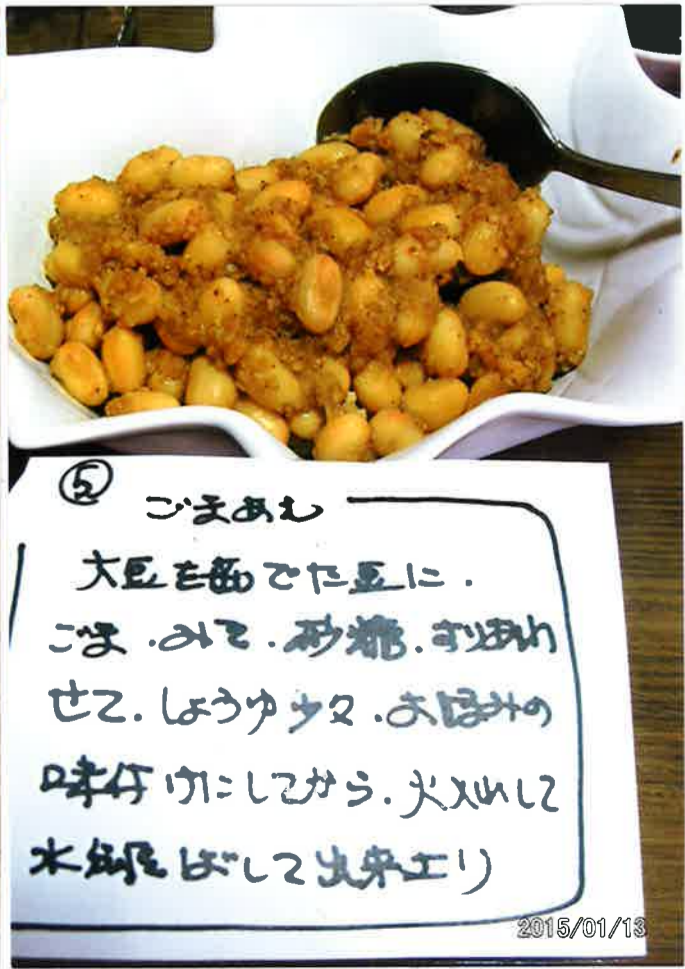 ⑤
ごまあむ
大豆を茹でた豆に.
ごま.みそ.砂糖.すりあわ
せて.しょうゆ少々.お好みの
味付けにしてから.火入れして
水
ばして出来上り
2015/01/13